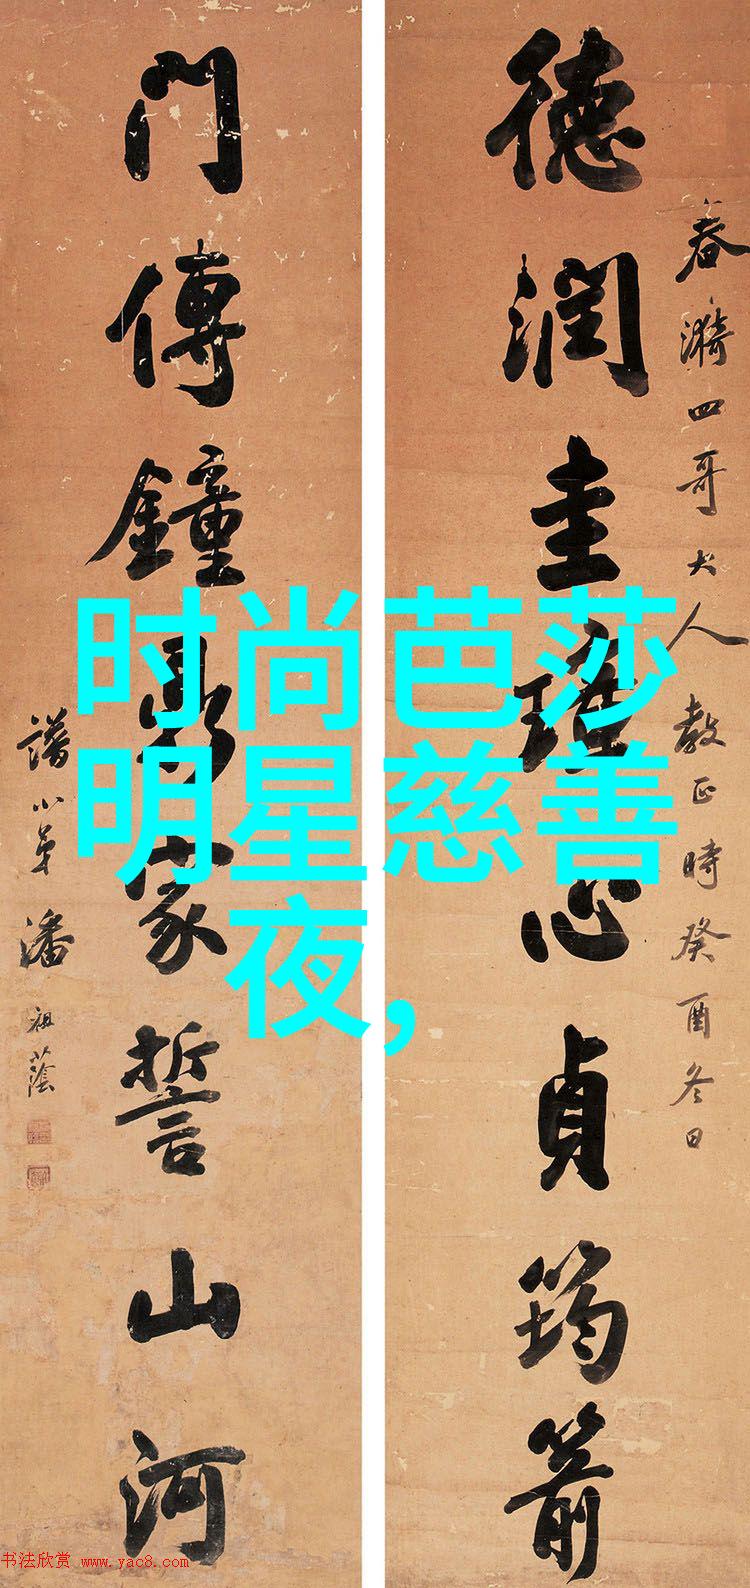 德潤圭璋心貞筠箭
春漪四哥大人教正時癸酉冬日
門傳鐘鼎家誓山河
譜小弟潘祖蔭
时尚芭莎
明星慈善
夜,
书法欣赏 www.yac8.com